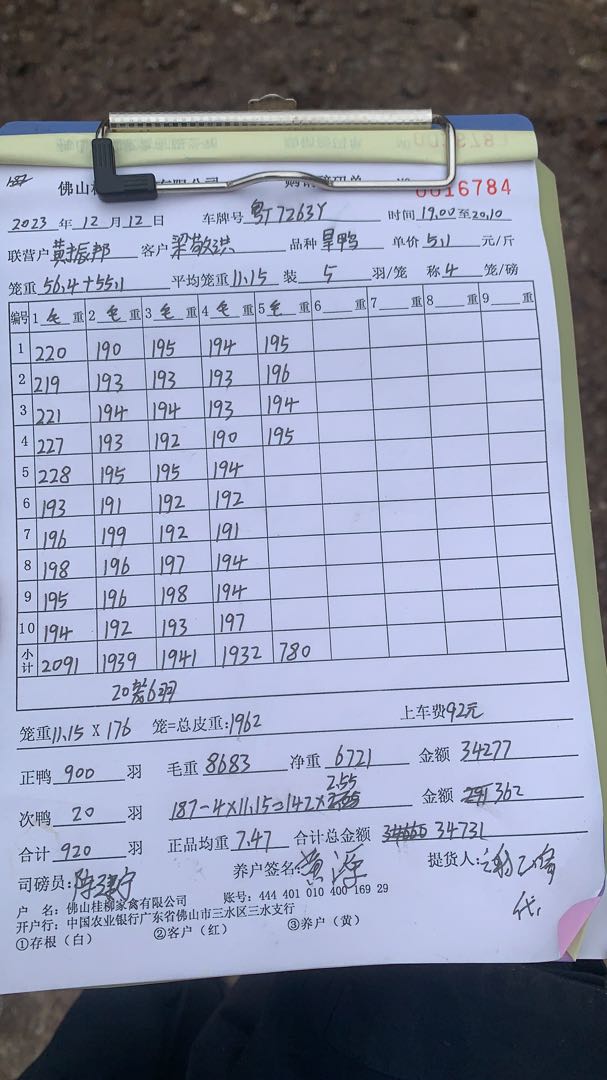 187
佛山桂 有限公司 购销磅码单 № 0016784
2023 年 12 月 12 日 车牌号 粤J7263Y 时间 19.00 至 20.10
联营户 黄振邦 客户 梁敬洪 品种 旱鸭 单价 5.1 元/斤
笼重 56.4+55.1 平均笼重 11.15 装 5 羽/笼 称 4 笼/磅
编号 1 毛 重 2 毛 重 3 毛 重 4 毛 重 5 毛 重 6 重 7 重 8 重 9 重
1 220 190 195 194 195
2 219 193 193 193 196
3 221 194 194 193 194
4 227 193 192 190 195
5 228 195 195 194
6 193 191 192 192
7 196 199 192 191
8 198 196 197 194
9 195 196 198 194
10 194 192 193 197
小计 2091 1939 1941 1932 780
20 6羽
笼重 11.15 X 176 笼=总皮重:1962 上车费92元
正鸭 900 羽 毛重 8683 净重 6721 金额 34277
次鸭 20 羽 187-4×11.15=142×2.55 金额 362
合计 920 羽 正品均重 7.47 合计总金额 34731
司磅员: 养户签名: 黄源 提货人: 代
户 名: 佛山桂柳家禽有限公司 账号: 444 401 010 400 169 29
开户行: 中国农业银行广东省佛山市三水区三水支行
①存根（白） ②客户（红） ③养户（黄）